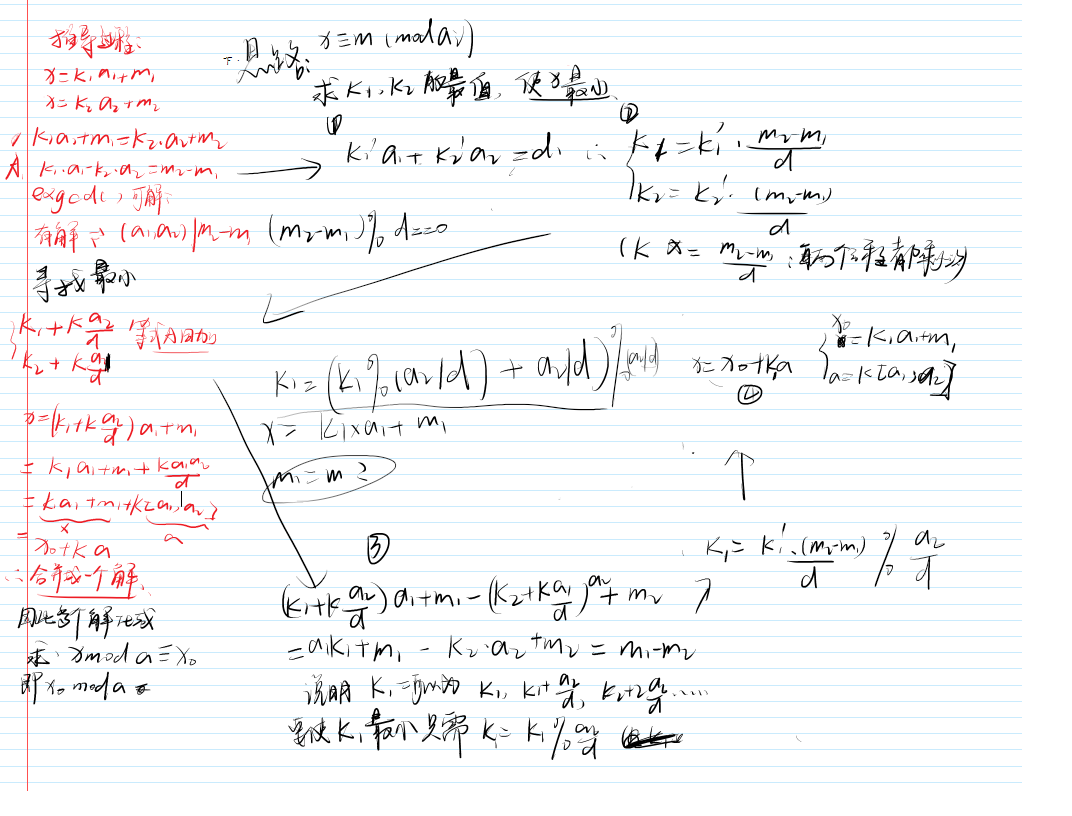 推导过程:
x=k₁a₁+m₁
x=k₂a₂+m₂
k₁a₁+m₁=k₂·a₂+m₂
k₁·a₁-k₂·a₂=m₂-m₁
exgcd()可解:
有解 ⇒ (a₁,a₂)|m₂-m₁
寻找最小
k₁+k a₂/d
k₂+k a₁/d
x=(k₁+k a₂/d)a₁+m₁
= k₁a₁+m₁+ka₁a₂/d
= k₁a₁+m₁+k[a₁,a₂]
x a
= x₀+ka
∴合并成一个解
因此多个解
求: x mod a≡x₀
即 x₀ mod a
思路: x≡m (mod a)
求k₁,k₂的最值,使x最小
① k₁'a₁+k₂'a₂=d, ∴
② k₁=k₁'·(m₂-m₁)/d
k₂=k₂'·(m₂-m₁)/d
(m₂-m₁)%d==0
k₁=(k₁%(a₂/d)+a₂/d)%(a₂/d)
x=k₁×a₁+m₁
m₁=m
x=x₀+ka
④
x₀=k₁a₁+m₁
a=k[a₁,a₂]
↑
k₁=k₁'·(m₂-m₁)/d % a₂/d
③
(k₁+k a₂/d)a₁+m₁-(k₂+k a₁/d)a₂+m₂
=a₁k₁+m₁-k₂·a₂+m₂=m₁-m₂
说明 k₁可以为 k₁, k₁+a₂/d, k₁+2a₂/d……
要使k₁最小只需 k₁=k₁%a₂/d